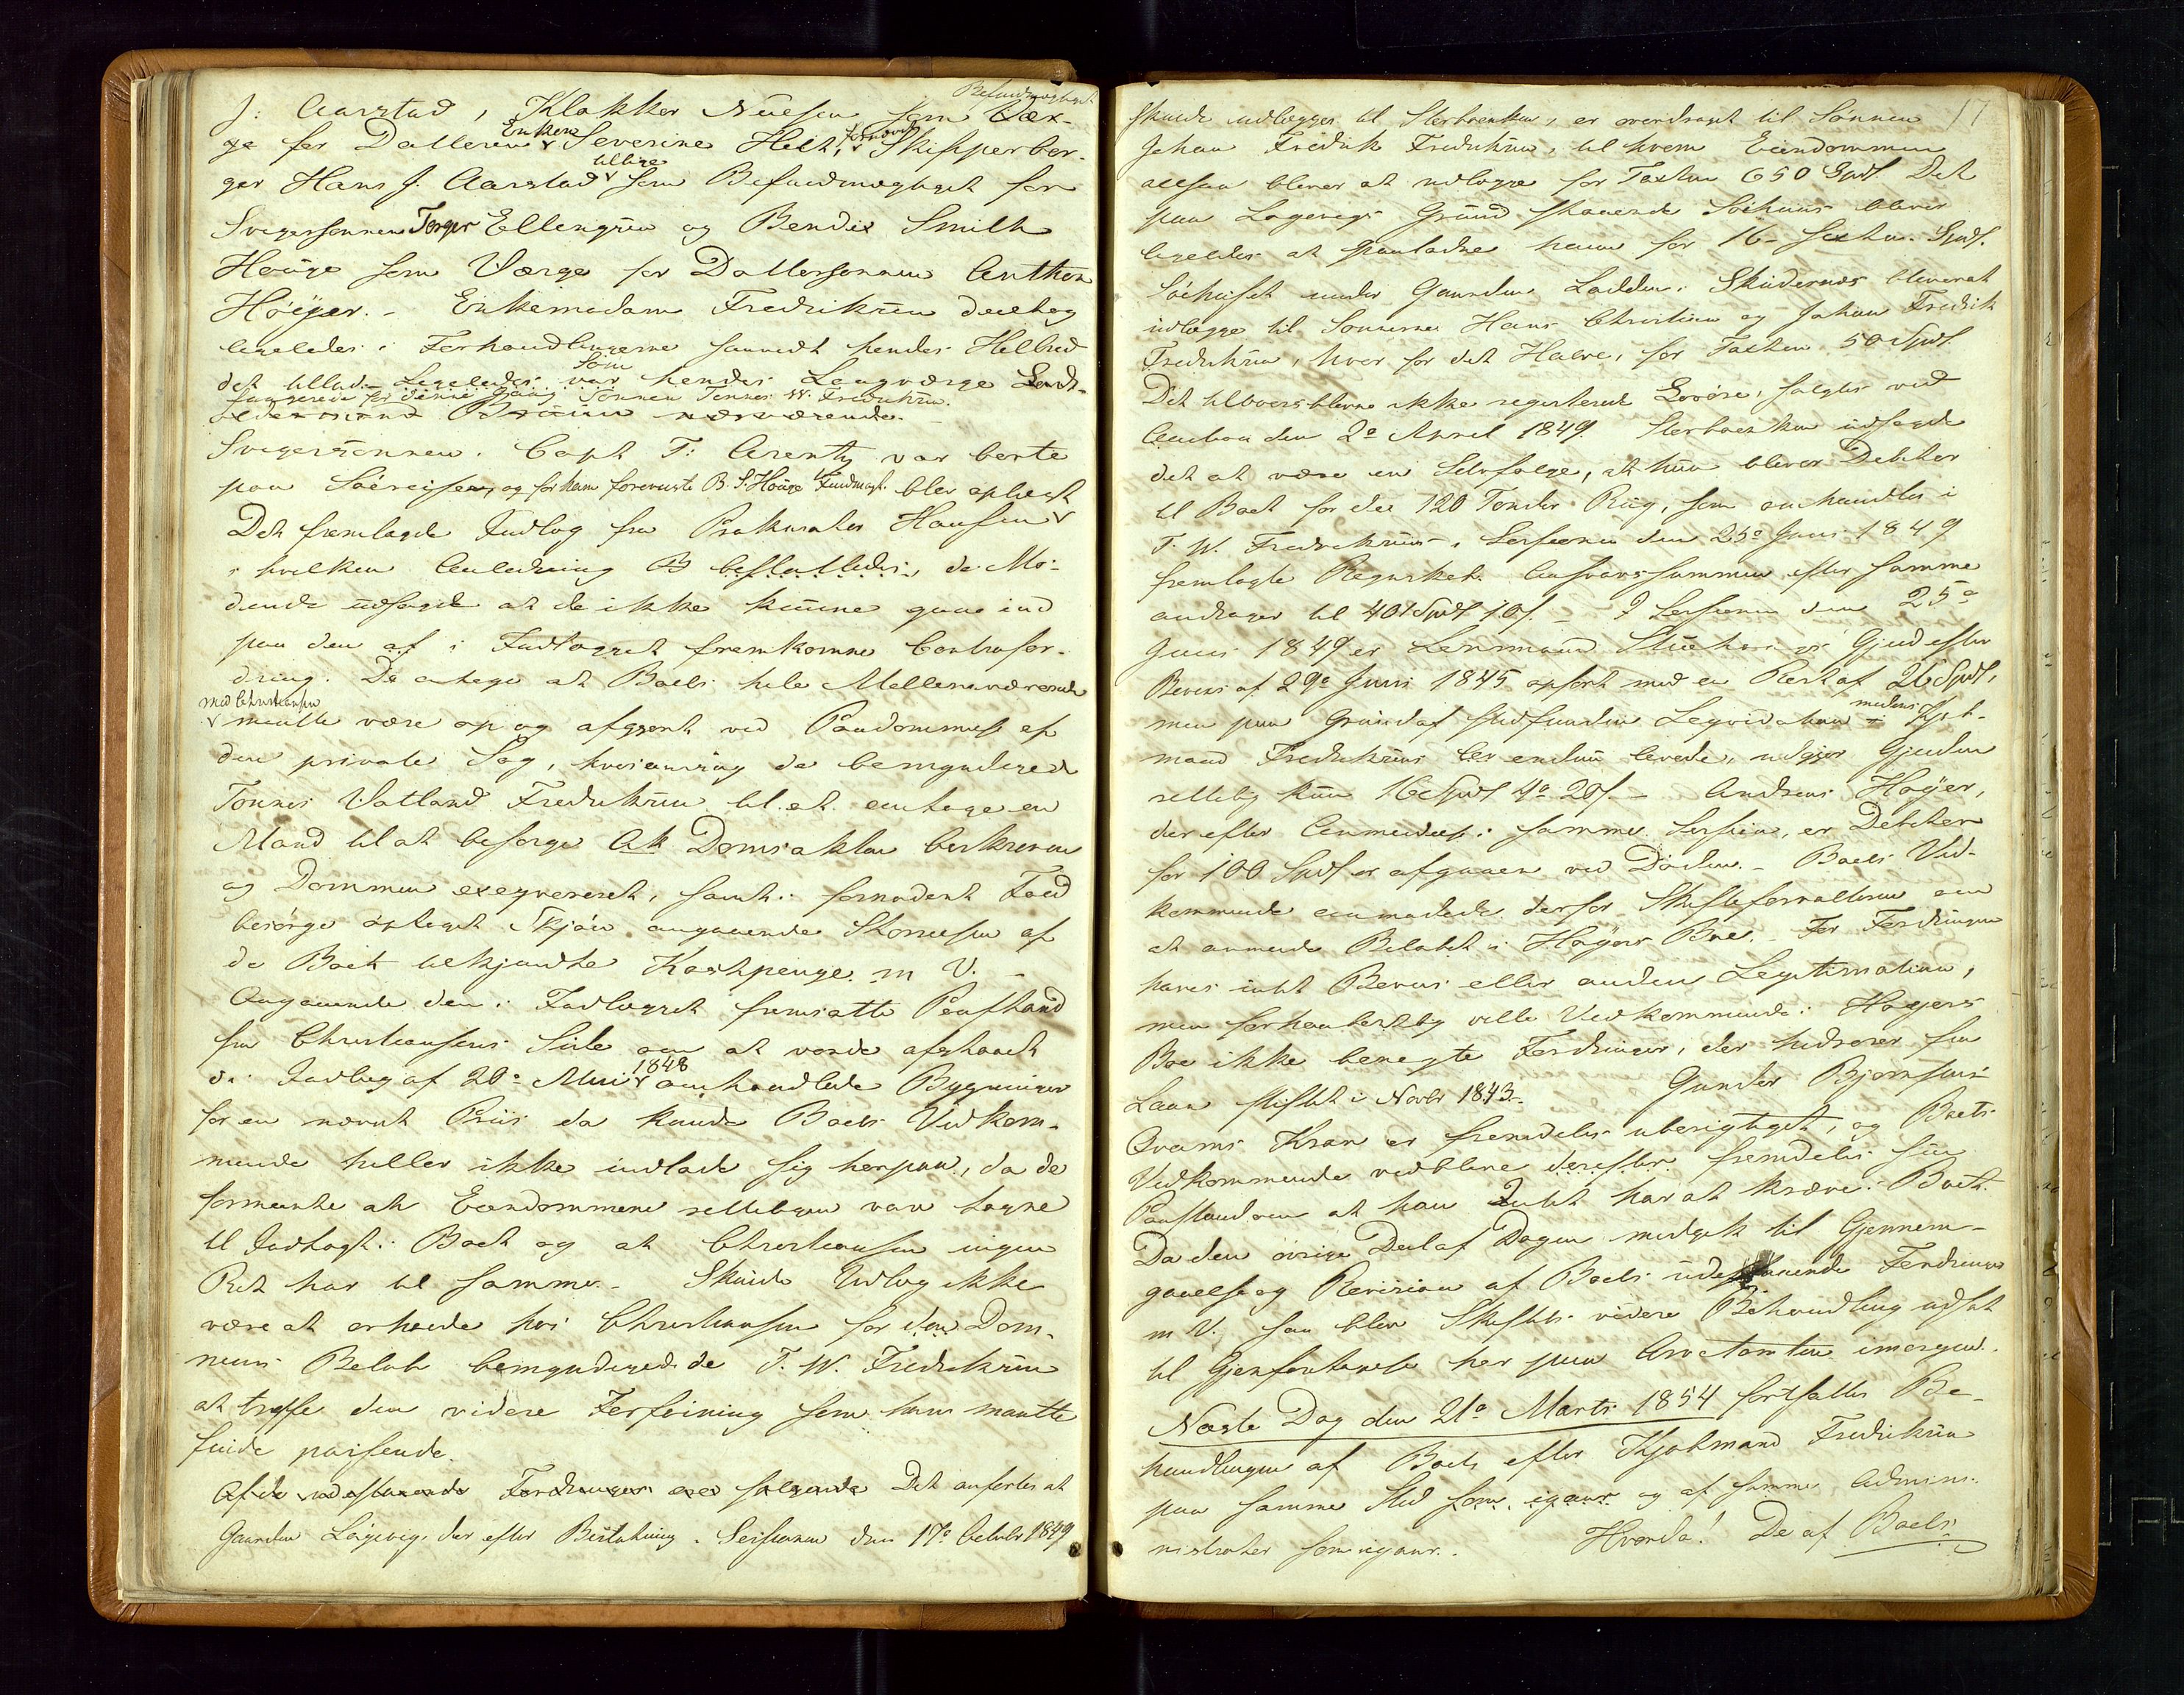 Befuldmægtiget
J: Aarstad, Klokker Nielsen som Vær-
ge for Datteren Enken Severine Helt, Skipperbor-
ger Hans J. Aarstad tillige som Befuldmægtiget for
Svigersønnen Torger Ellengren og Bendix Smith
Houge som Værge for Dattersønnen Anthon
Höÿer. - Enkemadam Fredriksen deeltog
ligeledes i Forhandlingerne saavidt hendes Helbred
det tillod. Ligeledes var hendes Laugværge
som fungerede for denne Gang Sønnen Tønnes W. Fredriksen.
nærværende.
Svigersönnen. Capt T: Arentz var borte
paa Söereiser, og for ham foreviste B. S. Houge Fuldmagt. blev oplæst
Det fremlagde Indlæg fra Prokurator Hansen
i hvilken Anledning de Mø-
dende udsagde at de ikke kunne gaae ind
paa den af i Indlægget fremkomne Contrafor-
dring. De antage at Boets hele Mellemværende
med Christiansen
maatte være op og afgjort ved Paadømmelse af
den private Sag, hvorimod de bemyndigede
Tönnes Watland Fredriksen til at antage en
Mand til at besørge Domsakten beskreven
og Dommen exeqveret, samt i fornødent Fald
besörge optaget Skjön angaaende Störrelsen af
de Boet tilkjendte Kostpenge m V. -
Angaaende den i Indlægget fremsatte Paastand
fra Christiansens Side om at vorde afstaaet
de i Indlæg af 20de Mai 1848 omhandlede Bygninger
for en nævnt Priis da kunde Boets Vedkom-
mende heller ikke indlade sig herpaa, da de
formeente at Eiendommene rettelig var tagne
til Indtægt i Boet og at Christiansen ingen
Ret har til samme. - Skulde Udlæg ikke
være at erholde hos Christiansen for den Dom-
mens Beløb bemyndigede de T. W. Fredriksen
at træffe den videre Forføining som han maatte
finde passende.
Af de udestaaende Fordringer ere følgende Det anførtes at
Gaarden Lögevig, der efter Beslutning i Sessionen den 17de Octobr 1849
17
skulde udlægges til Sterboenken, er overdraget til Sønnen
Johan Fredrik Fredriksen, til hvem Eiendommen
altsaa bliver at udlægge for Taxten 650 Spdl. Det
paa Lögevigs Grund staaende Söehuus bliver
ligeledes at overlade ham for 16- sexten Spdl.
Söehuset under Gaarden Ladden i Skudesnæs bliver at
udlægge til Sønnerne Hans Christian og Johan Fredrik
Fredriksen, hver for det Halve, for Taxten 50 Spdl
Det tiloversblevne ikke registerede Lösöre, solgtes ved
Auction den 2de April 1849. Sterboenken udsagde
det at være en Selvfølge, at hun bliver Debitor
til Boet for de 120 Tønder Rug, som omhandles i
T. W. Fredriksens i Sessionen den 25de Juni 1849
fremlagte Regnskab. Ansvarssummen efter samme
andrager til 401 Spdl 10 s. - I Sessionen den 25de
Juni 1849 er Lensmand Gjeld efter
Beviis af 29de Juni 1845 opført med en Rest af 26 Spdl,
men paa Grund af stedfunden Leqvidation medens Kjøb-
mand Fredriksen endnu levede, udgjør Gjælden
rettelig kun 16 Spdl 4 20 s. - Andreas Höÿer,
der efter Anmeldelse i samme Session, er Debitor
for 100 Spdl er afgaaen ved Døden. - Boets Ved-
kommende anmodede derfor Skifteforvalteren om
at anmelde Beløbet i Höÿers Boe. - For Fordringen
haves intet Beviis eller anden Legitimation,
men forhaabentlig ville Vedkommende i Höyers
Boe ikke benegte Fordringen, der hidrører fra
Laan stiftet i Novbr 1843. - Gunder Bjørnsens
Qvams Krav er fremdeles uberigtiget, og Boets
Vedkommende vedbleve derefter fremdeles sin
Paastand om at han Intet har at kræve i Boet.
Da den øvrige Deel af Dagen medgik til Gjennem-
gaaelse og Revision af Boets udestaaende Fordringer
m V. saa blev Skiftets videre Behandling udsat
til Gjenforetagelse her paa Arvetomten imorgen.
Næste Dag den 21de Marts 1854 fortsattes Be-
handlingen af Boet efter Kjøbmand Fredriksen
paa samme Sted som igaar og af samme Admini-
nistrator som igaar. Hvorda! De af Boets